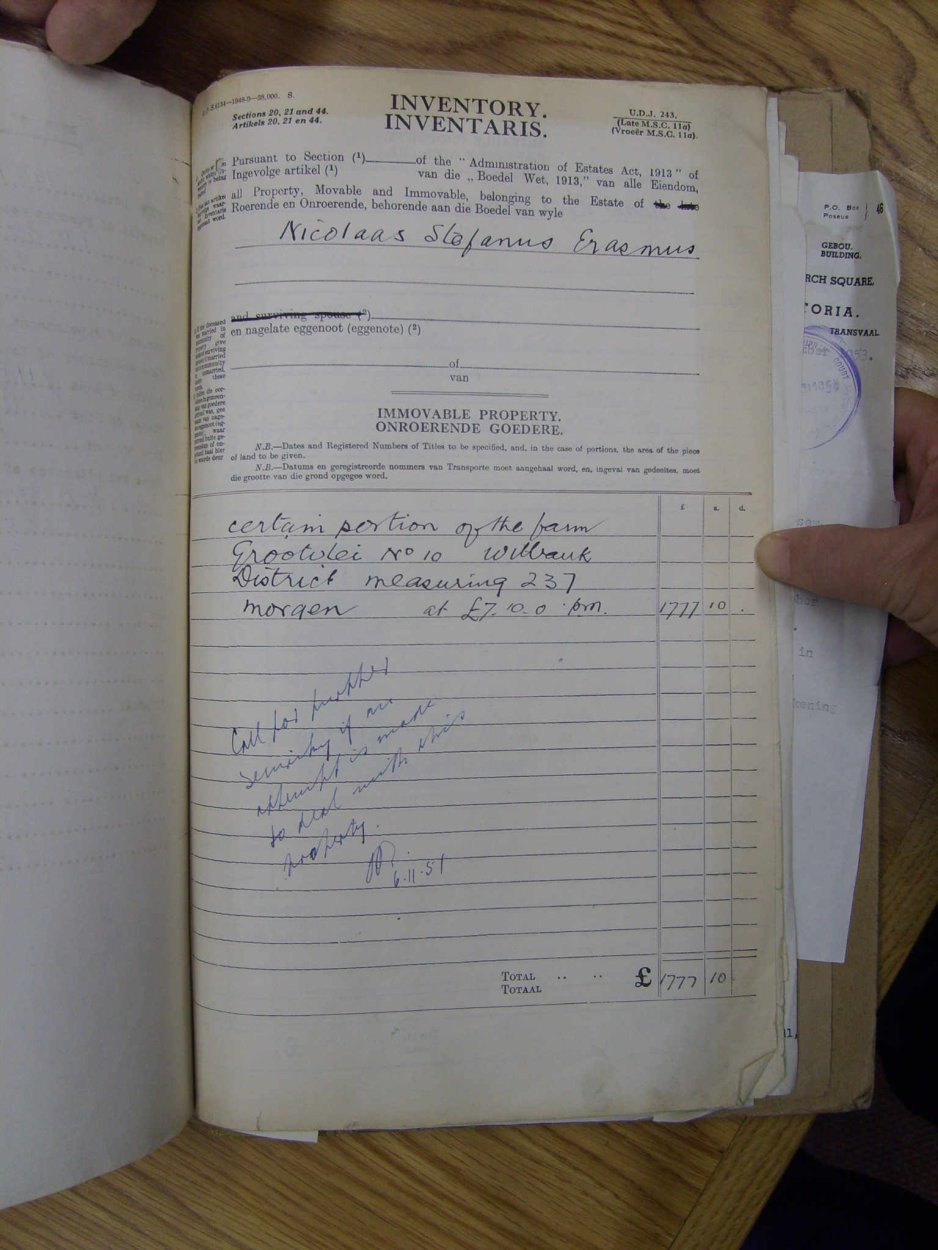 S.6134—1948-9—38,000. S.
Sections 20, 21 and 44.
Artikels 20, 21 en 44.
INVENTORY.
INVENTARIS.
U.D.J. 243.
(Late M.S.C. 11a)
(Vroeër M.S.C. 11a).
Pursuant to Section (¹) of the " Administration of Estates Act, 1913 " of
Ingevolge artikel (¹) van die „ Boedel Wet, 1913," van alle Eiendom,
all Property, Movable and Immovable, belonging to the Estate of the late
Roerende en Onroerende, behorende aan die Boedel van wyle
Nicolaas Stefanus Erasmus
and surviving spouse (²)
en nagelate eggenoot (eggenote) (²)
of
van
IMMOVABLE PROPERTY.
ONROERENDE GOEDERE.
N.B.—Dates and Registered Numbers of Titles to be specified, and, in the case of portions, the area of the piece
of land to be given.
N.B.—Datums en geregistreerde nommers van Transporte moet aangehaal word, en, ingeval van gedeeltes, moet
die grootte van die grond opgegee word.
£ s. d.
certain portion of the farm
Grootvlei No 10 Witbank
District measuring 237
morgen at £7.10.0 pm. 1777 10 .
Call for further
security if an
attempt is made
to deal with this
property.
6.11.51
TOTAL .. .. £ 1777 10
TOTAAL
P.O. Box
Posbus
46
GEBOU.
BUILDING.
RCH SQUARE,
TORIA.
TRANSVAAL
COURT
in